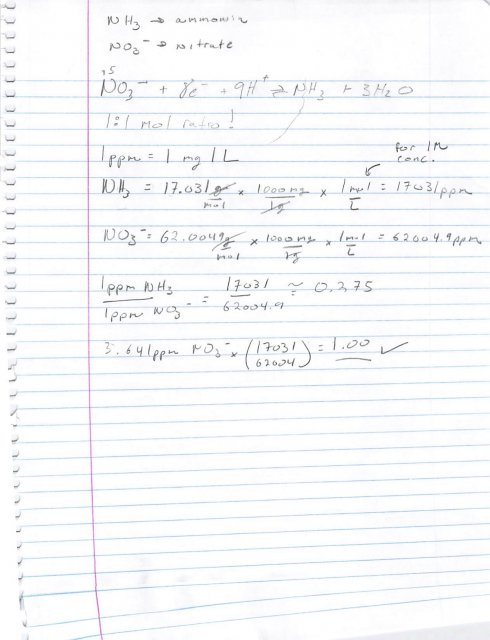 NH3 → ammonia
NO3⁻ → nitrate
+5
NO3⁻ + 8e⁻ + 9H⁺ ⇌ NH3 + 3H2O
1:1 mol ratio!
1ppm = 1 mg/L
for 1M conc.
NH3 = 17.031g/mol × 1000mg/1g × 1mol/L = 17031ppm
NO3⁻ = 62.0049g/mol × 1000mg/1g × 1mol/L = 62004.9ppm
1ppm NH3/1ppm NO3⁻ = 17031/62004.9 ≈ 0.275
3.641ppm NO3⁻ × (17031/62004) = 1.00 ✓